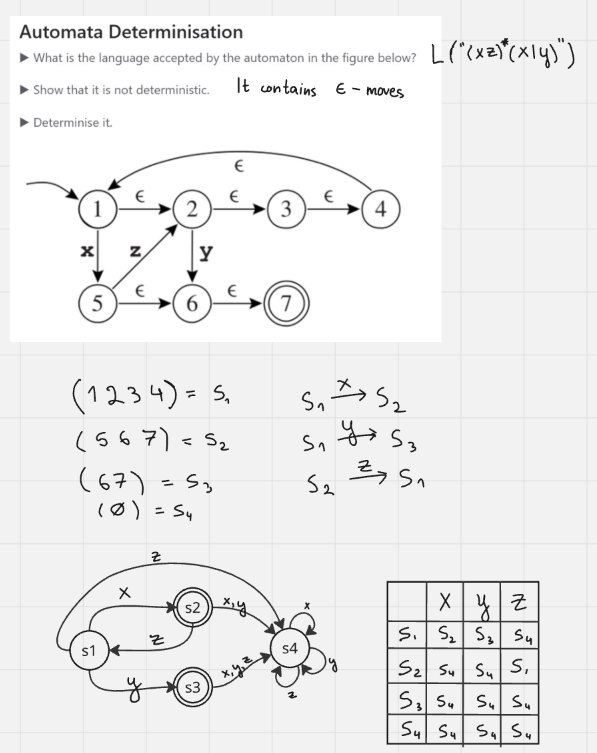 Automata Determinisation
▶ What is the language accepted by the automaton in the figure below? L("(xz)*(x|y)")
▶ Show that it is not deterministic. It contains ϵ - moves
▶ Determinise it.
ϵ
1 ϵ 2 ϵ 3 ϵ 4
x z y
5 ϵ 6 ϵ 7
(1 2 3 4) = S₁ S₁ x→ S₂
(5 6 7) = S₂ S₁ y→ S₃
(67) = S₃ S₂ z→ S₁
(∅) = S₄
z
x s2 x,y x
s1 z s4
y s3 x,y,z z y
X y Z
S₁ S₂ S₃ S₄
S₂ S₄ S₄ S₁
S₃ S₄ S₄ S₄
S₄ S₄ S₄ S₄